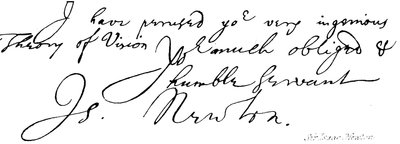 I have perused yoᵉ very ingenious
Theory of Vision
Yoᵉ much obliged &
humble Servant
Is. Newton.
Sir Isaac Newton